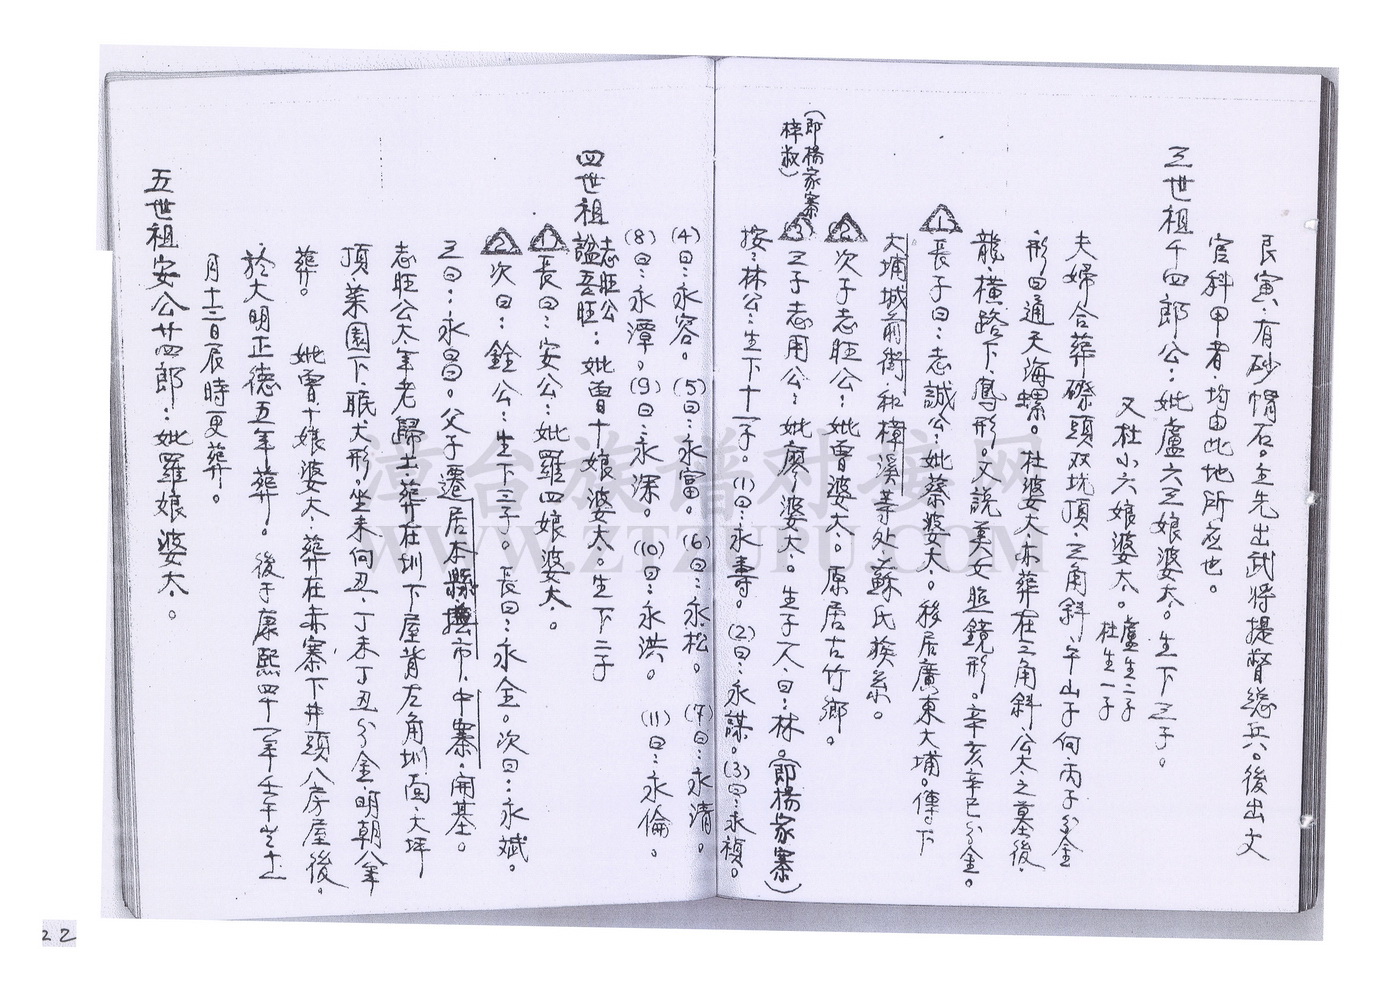 艮寅，有砂帽石。主先出武將提督總兵。後出文
官科甲者，均由此地所應也。
三世祖千四郎公：妣盧六三娘婆太。生下三子。
又杜小六娘婆太。盧生二子
杜生一子
夫婦合葬磜頭双坑頂，三角斜，午山子向，丙子分金
形曰通天海螺。杜婆太亦葬在三角斜，公太之墓後，
龍，橫路下，鳳形。又說美女照鏡形。辛亥辛巳分金。
①長子曰：志誠公：妣蔡婆太。移居廣東大埔。傳下
大埔城前街，和樟溪等处蘇氏族系。
②次子志旺公：妣曾婆太。原居古竹鄉。
③三子志用公：妣廖婆太。生子一人，曰：林。(即楊家寨)
(即楊家寨
梓叔)
按：林公：生下十一子。(1)曰：永壽。(2)曰：永謀。(3)曰：永禎。
(4)曰：永容。(5)曰：永富。(6)曰：永松。(7)曰：永清。
(8)曰：永潭。(9)曰：永深。(10)曰：永洪。(11)曰：永倫。
四世祖 志旺公
諡吾旺：妣曾十娘婆太。生下二子
①長曰：安公：妣羅四娘婆太。
②次曰：銓公：生下三子。長曰：永全。次曰：永斌。
三曰：永昌。父子遷居本縣市，中寨。開基。
志旺公太年老歸土葬在圳下屋背左角圳面，大坪
頂，菜園下，眠犬形。坐未向丑，丁未丁丑分金，明朝公年
葬。 妣曾十娘婆太，葬在赤寨下井頭八房屋後。
於大明正德五年葬。後于康熙四十一年壬午岁十
月十二日辰時更葬。
五世祖安公廿四郎：妣羅娘婆太。
漳台族谱对接网
WWW.ZTZUPU.COM
22